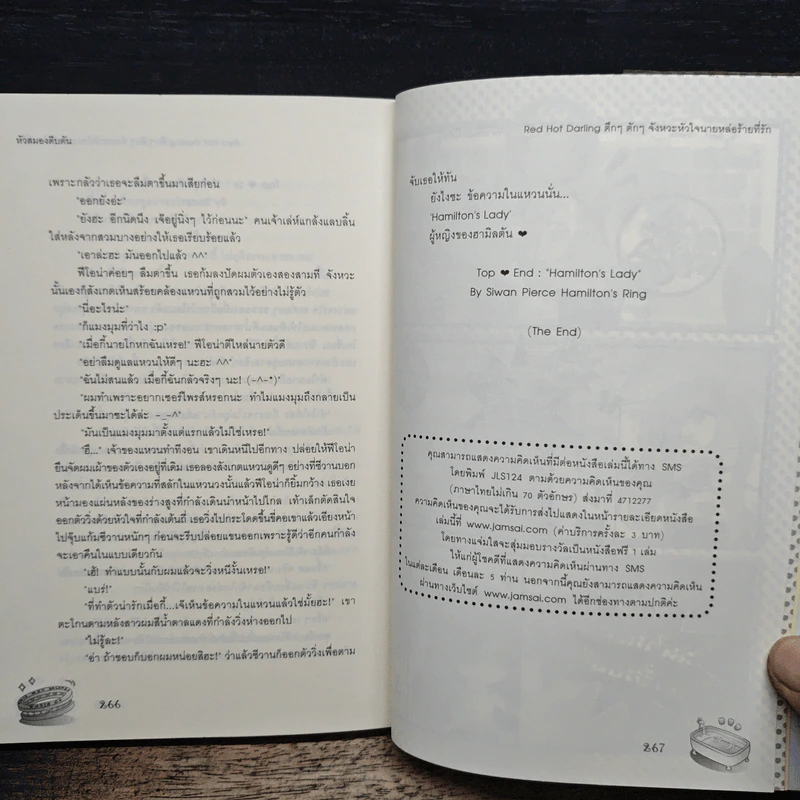 หัวสมองตีบตัน
เพราะกลัวว่าเธอจะลืมตาขึ้นมาเสียก่อน
"ออกยังอ่ะ"
"ยังฮะ อีกนิดนึง เจ๊อยู่นิ่งๆ ไว้ก่อนนะ" คนเจ้าเล่ห์แกล้งแลบลิ้น
ใส่หลังจากสวมบางอย่างให้เธอเรียบร้อยแล้ว
"เอาล่ะฮะ มันออกไปแล้ว ^^"
ฟีโอน่าค่อยๆ ลืมตาขึ้น เธอก้มลงปัดผมตัวเองสองสามที จังหวะ
นั้นเองก็สังเกตเห็นสร้อยคล้องแหวนที่ถูกสวมไว้อย่างไม่รู้ตัว
"นี่อะไรน่ะ"
"ก็แมงมุมที่ว่าไง :p"
"เมื่อกี้นายโกหกฉันเหรอ!" ฟีโอน่าตีไหล่นายตัวดี
"อย่าลืมดูแลแหวนให้ดีๆ นะฮะ ^^"
"ฉันไม่สนแล้ว เมื่อกี้ฉันกลัวจริงๆ นะ! (-^-*)"
"ผมทำเพราะอยากเซอร์ไพรส์หรอกนะ ทำไมแมงมุมถึงกลายเป็น
ประเด็นขึ้นมาซะได้ล่ะ -_-^"
"มันเป็นแมงมุมมาตั้งแต่แรกแล้วไม่ใช่เหรอ!"
"ฮึ..." เจ้าของแหวนทำทีงอน เขาเดินหนีไปอีกทาง ปล่อยให้ฟีโอน่า
ยืนจัดผมเผ้าของตัวเองอยู่ที่เดิม เธอลองสังเกตแหวนดูดีๆ อย่างที่ซีวานบอก
หลังจากได้เห็นข้อความที่สลักในแหวนวงนั้นแล้วฟีโอน่าก็ยิ้มกว้าง เธอเงย
หน้ามองแผ่นหลังของร่างสูงที่กำลังเดินนำหน้าไปไกล เท้าเล็กตัดสินใจ
ออกตัววิ่งด้วยหัวใจที่กำลังเต้นถี่ เธอวิ่งไปกระโดดขึ้นขี่คอเขาแล้วเอียงหน้า
ไปจุ๊บแก้มซีวานหนักๆ ก่อนจะรีบปล่อยแขนออกเพราะรู้ดีว่าอีกคนกำลัง
จะเอาคืนในแบบเดียวกัน
"เฮ้! ทำแบบนั้นกับผมแล้วจะวิ่งหนีงั้นเหรอ!"
"แบร่!"
"ที่ทำตัวน่ารักเมื่อกี้...เจ๊เห็นข้อความในแหวนแล้วใช่มั้ยฮะ!" เขา
ตะโกนตามหลังสาวผมสีน้ำตาลแดงที่กำลังวิ่งห่างออกไป
"ไม่รู้ละ!"
"อ๋า ถ้าชอบก็บอกผมหน่อยสิฮะ!" ว่าแล้วซีวานก็ออกตัววิ่งเพื่อตาม
266
Red Hot Darling ตึกๆ ตักๆ จังหวะหัวใจนายหล่อร้ายที่รัก
จับเธอให้ทัน
ยังไงซะ ข้อความในแหวนนั่น...
'Hamilton's Lady'
ผู้หญิงของฮามิลตัน ❤
Top ❤ End : "Hamilton's Lady"
By Siwan Pierce Hamilton's Ring
(The End)
คุณสามารถแสดงความคิดเห็นที่มีต่อหนังสือเล่มนี้ได้ทาง SMS
โดยพิมพ์ JLS124 ตามด้วยความคิดเห็นของคุณ
(ภาษาไทยไม่เกิน 70 ตัวอักษร) ส่งมาที่ 4712277
ความคิดเห็นของคุณจะได้รับการส่งไปแสดงในหน้ารายละเอียดหนังสือ
เล่มนี้ที่ www.jamsai.com (ค่าบริการครั้งละ 3 บาท)
โดยทางแจ่มใสจะสุ่มมอบรางวัลเป็นหนังสือฟรี 1 เล่ม
ให้แก่ผู้โชคดีที่แสดงความคิดเห็นผ่านทาง SMS
ในแต่ละเดือน เดือนละ 5 ท่าน นอกจากนี้คุณยังสามารถแสดงความคิดเห็น
ผ่านทางเว็บไซต์ www.jamsai.com ได้อีกช่องทางตามปกติค่ะ
267